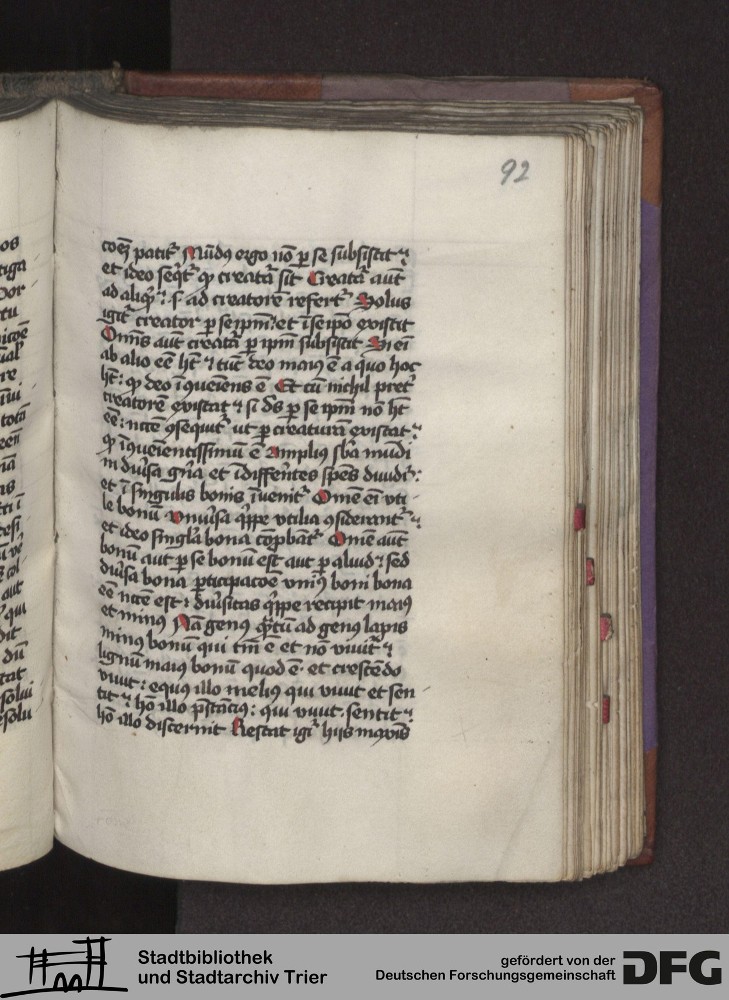 92
coēȝ patit᷑ Mūdꝯ ergo nō ꝑ se subsistit ⁊
et ideo seq̄t᷑ ꝙ creatā sit Creatā aūt
ad aliqͥ : ſ ad creatorē refert᷑ Solus
igit᷑ creator ꝑ seipm̄ : et ī seipō existit
Om̄is aūt creatā ꝑ ipm̄ subsistit Si eī
ab alio eē hꝫ ⁊ tūc deo maiꝯ ē a quo hoc
hꝫ : ꝙ deo īqueīens ē Et cū nichil pret᷑
creatorē existat ⁊ si ds̄ ꝑ se ipm̄ nō hꝫ
eē : nc̄cē ꝯsequit᷑ ut ꝑ creaturā existat ⁊
ꝙ īqueīentissimū ē Amplius sb̄a mūdi
in diuˀsa gn̄a et īdiffeˀntes spēs diuidit᷑ :
et ī singulis bonis īuenit᷑ Omē eī vti
le bonū Vniuˀsa qͥppe vtilia ꝯsiderant᷑ ⁊
et ideo singl̄a bona cōprobāt᷑ Omē aūt
bonū aut ꝑ se bonū est aut ꝑ aliud ⁊ sed
diuˀsa bona ꝑticipacōē vniꝯ boni bona
eē nc̄cē est : diuˀsitas qͥppe recipit maiꝯ
et minꝯ Nā genꝯ qͣtū ad genꝯ lapis
minꝯ bonū qui tm̄ ē et nō viuit ⁊
lignū maiꝯ bonū quod ē · et crescēdo
viuit : equꝯ illo meliꝯ qui viuit et sen
tit ⁊ hō illo prestāciꝯ : qui viuit · sentit ⁊
hō illo discernit Restat igr᷑ hijs
Stadtbibliothek
und Stadtarchiv Trier
gefördert von der
Deutschen Forschungsgemeinschaft
DFG